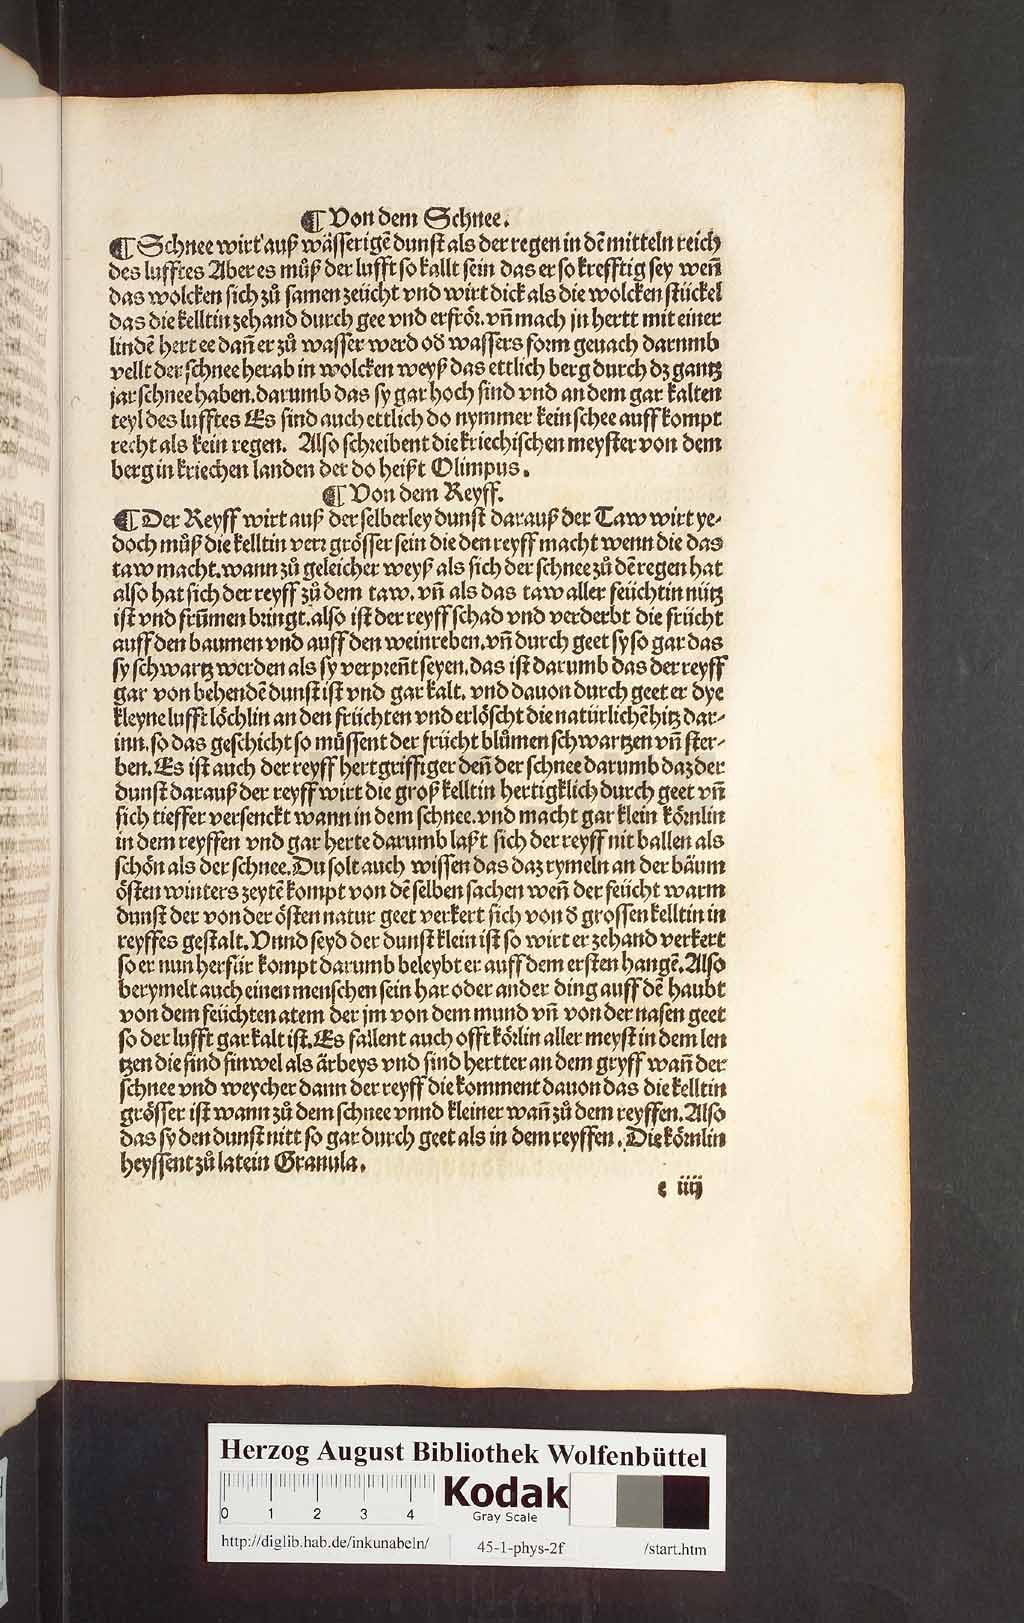 ¶ Von dem Schnee.
¶ Schnee wirt auß wässerigē dunst als der regen in dē mitteln reich
des lufftes Aber es můß der lufft so kallt sein das er so krefftig sey weñ
das wolcken sich zů samen zeücht vnd wirt dick als die wolcken stückel
das die kelltin zehand durch gee vnd erfrör. vñ mach jn hertt mit einer
lindē hert ee dañ er zů wasser werd od̄ wassers form geuach darumb
vellt der schnee herab in wolcken weyß das ettlich berg durch dz gantz
jar schnee haben. darumb das sy gar hoch sind vnd an dem gar kalten
teyl des lufftes Es sind auch ettlich do nymmer kein schee auff kompt
recht als kein regen. Also schreibent die kriechischen meyster von dem
berg in kriechen landen der do heißt Olimpus.
¶ Von dem Reyff.
¶ Der Reyff wirt auß der selberley dunst darauß der Taw wirt ye-
doch můß die kelltin verr grösser sein die den reyff macht wenn die das
taw macht. wann zů geleicher weyß als sich der schnee zů dē regen hat
also hat sich der reyff zů dem taw. vñ als das taw aller feüchtin nütz
ist vnd frūmen bringt. also ist der reyff schad vnd verderbt die frücht
auff den baumen vnd auff den weinreben. vñ durch geet sy so gar das
sy schwartz werden als sy verpreñt seyen. das ist darumb das der reyff
gar von behendē dunst ist vnd gar kalt. vnd dauon durch geet er dye
kleyne lufft löchlin an den früchten vnd erlöscht die natürlichē hitz dar-
inn. so das geschicht so müssent der frücht blůmen schwartzen vñ ster-
ben. Es ist auch der reyff hertgriffiger deñ der schnee darumb daz der
dunst darauß der reyff wirt die groß kelltin hertigklich durch geet vñ
sich tieffer versenckt wann in dem schnee. vnd macht gar klein körnlin
in dem reyffen vnd gar herte darumb laßt sich der reyff nit ballen als
schön als der schnee. Du solt auch wissen das daz rymeln an der bäum
östen winters zeytē kompt von dē selben sachen weñ der feücht warm
dunst der von der östen natur geet verkert sich von d̄ grossen kelltin in
reyffes gestalt. Vnnd seyd der dunst klein ist so wirt er zehand verkert
so er nun herfür kompt darumb beleybt er auff dem ersten hangē. Also
berymelt auch einen menschen sein har oder ander ding auff dē haubt
von dem feüchten atem der jm von dem mund vñ von der nasen geet
so der lufft gar kalt ist. Es fallent auch offt körlin aller meyst in dem len
tzen die sind sinwel als ärbeys vnd sind hertter an dem gryff wañ der
schnee vnd weycher dann der reyff die komment dauon das die kelltin
grösser ist wann zů dem schnee vnnd kleiner wañ zů dem reyffen. Also
das sy den dunst nitt so gar durch geet als in dem reyffen. Die körnlin
heyssent zů latein Granula.
c iiij
Herzog August Bibliothek Wolfenbüttel
0 1 2 3 4
Kodak
Gray Scale
http://diglib.hab.de/inkunabeln/ 45-1-phys-2f /start.htm